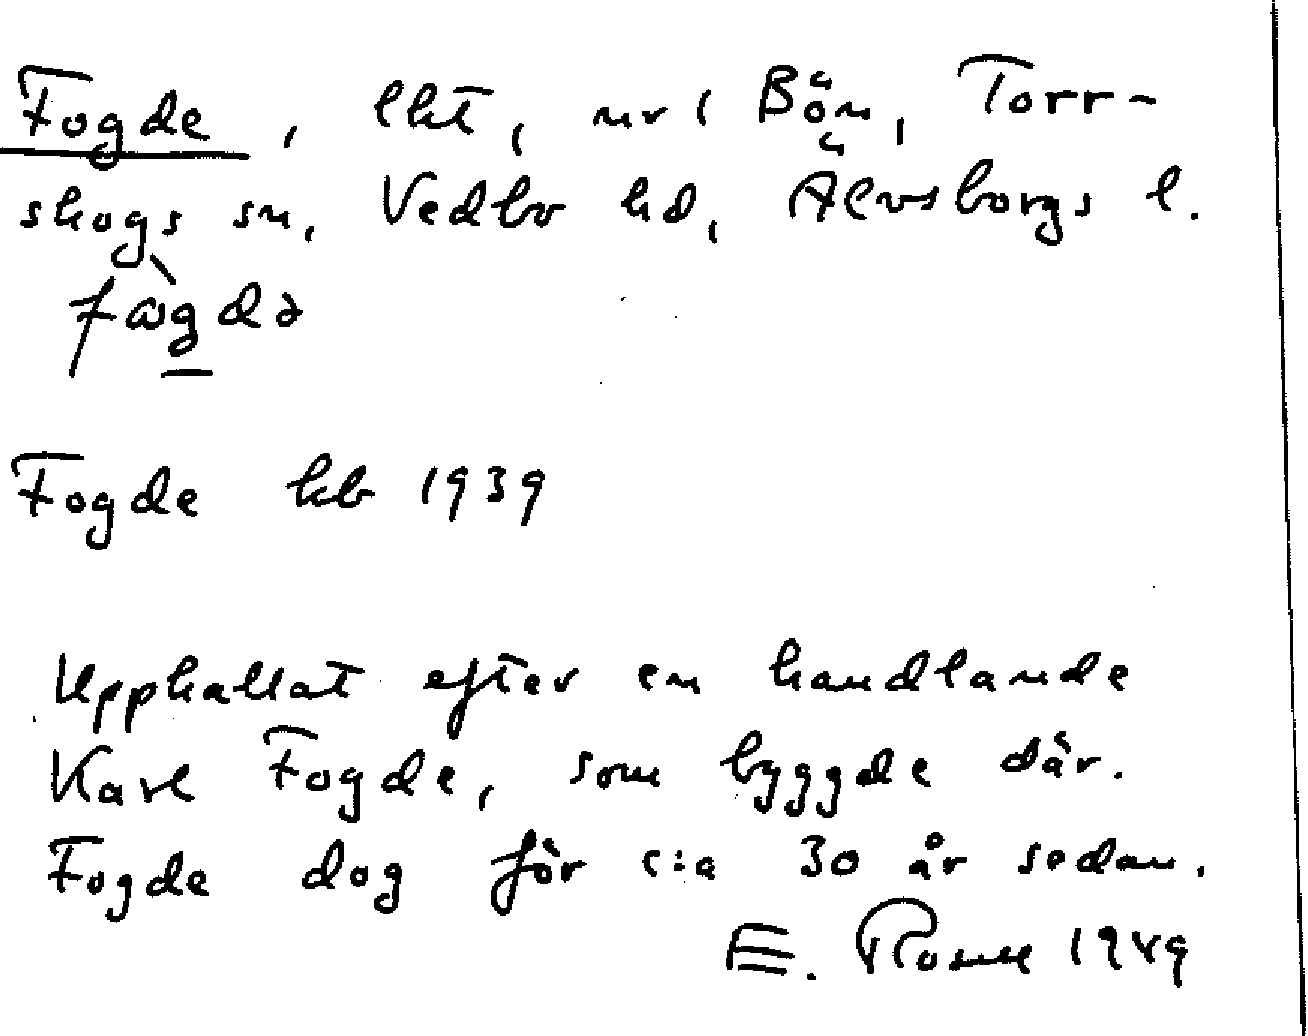 Fogde, lht, nr 1 Bön, Torr-
skogs sn, Vedbo hd, Älvsborgs l.
Fogde kb 1939
Uppkallat efter en handlande
Karl Fogde, som byggde där.
Fogde dog för c:a 30 år sedan.
E. Rosell 1949